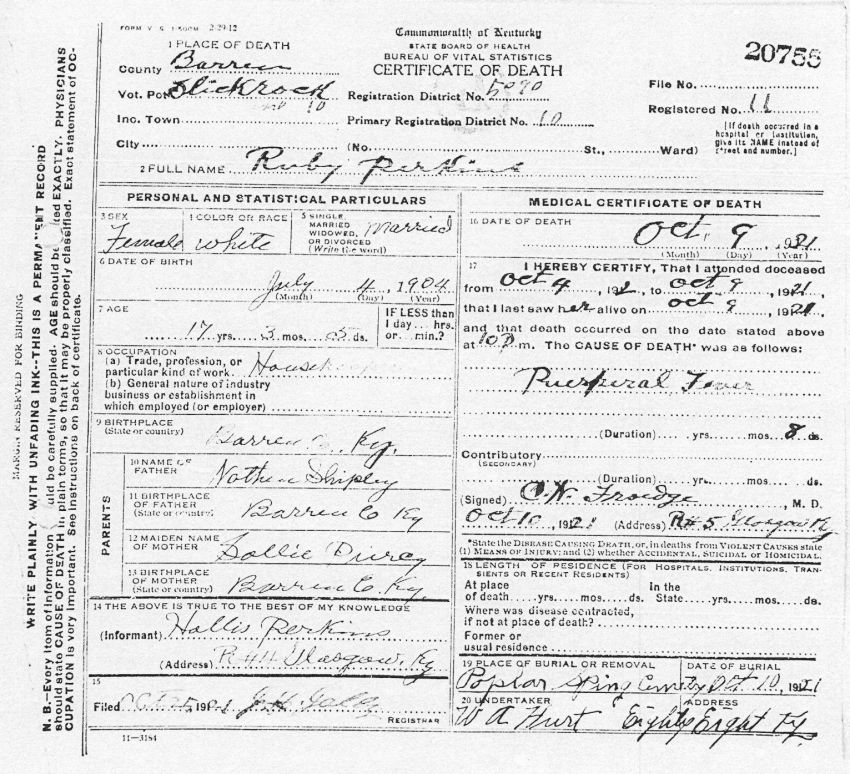 2-29-12
Commonwealth of Kentucky
STATE BOARD OF HEALTH
BUREAU OF VITAL STATISTICS
CERTIFICATE OF DEATH
20755
1 PLACE OF DEATH
County Barren
Vot. Pct. Slickrock
Inc. Town
City
Registration District No. 5090
Primary Registration District No. 10
(No. St., Ward)
File No.
Registered No. 11
[If death occurred in a
hospital or institution,
give its NAME instead of
street and number.]
2 FULL NAME Ruby Perkins
PERSONAL AND STATISTICAL PARTICULARS
3 SEX
Female
4 COLOR OR RACE
White
5 SINGLE,
MARRIED
WIDOWED,
OR DIVORCED
(Write the word)
Married
6 DATE OF BIRTH
July 4, 1904
(Month) (Day) (Year)
7 AGE
17 yrs. 3 mos. 5 ds.
IF LESS than
1 day... hrs.
or... min.?
8 OCCUPATION
(a) Trade, profession, or
particular kind of work.
(b) General nature of industry
business or establishment in
which employed (or employer)
9 BIRTHPLACE
(State or country)
Barren Co., Ky.
PARENTS
10 NAME OF
FATHER
Nathen Shipley
11 BIRTHPLACE
OF FATHER
(State or country)
Barren Co Ky
12 MAIDEN NAME
OF MOTHER
13 BIRTHPLACE
OF MOTHER
(State or country)
Barren Co. Ky.
14 THE ABOVE IS TRUE TO THE BEST OF MY KNOWLEDGE
(Informant) Hollis Perkins
(Address) R#4 Glasgow, Ky
15
Filed
REGISTRAR
11-3184
MEDICAL CERTIFICATE OF DEATH
16 DATE OF DEATH
Oct. 9, 1921
(Month) (Day) (Year)
17 I HEREBY CERTIFY, That I attended deceased
from Oct 4, 192, to Oct 9, 1921,
that I last saw her alive on Oct 9, 1921,
and that death occurred on the date stated above
at 10 P.m. The CAUSE OF DEATH* was as follows:
Puerperal Fever
(Duration) yrs. mos. 8 ds.
Contributory
(SECONDARY)
(Duration) yrs. mos. ds.
(Signed) C.W. Froedge, M. D.
Oct 10, 1921 (Address) R#5 Glasgow Ky
*State the DISEASE CAUSING DEATH, or, in deaths from VIOLENT CAUSES state
(1) MEANS OF INJURY; and (2) whether ACCIDENTAL, SUICIDAL or HOMICIDAL.
18 LENGTH OF RESIDENCE (FOR HOSPITALS, INSTITUTIONS, TRAN-
SIENTS OR RECENT RESIDENTS)
At place In the
of death yrs. mos. ds. State yrs. mos. ds.
Where was disease contracted,
if not at place of death?
Former or
usual residence
19 PLACE OF BURIAL OR REMOVAL
Poplar Spring
DATE OF BURIAL
Oct 10, 1921
20 UNDERTAKER
W A Hurt
ADDRESS
Eighty Eight Ky.
MARGIN RESERVED FOR BINDING
WRITE PLAINLY WITH UNFADING INK--THIS IS A PERMANENT RECORD
N. B.--Every item of information should be carefully supplied. AGE should be stated EXACTLY. PHYSICIANS
should state CAUSE OF DEATH in plain terms, so that it may be properly classified. Exact statement of OC-
CUPATION is very important. See instructions on back of certificate.